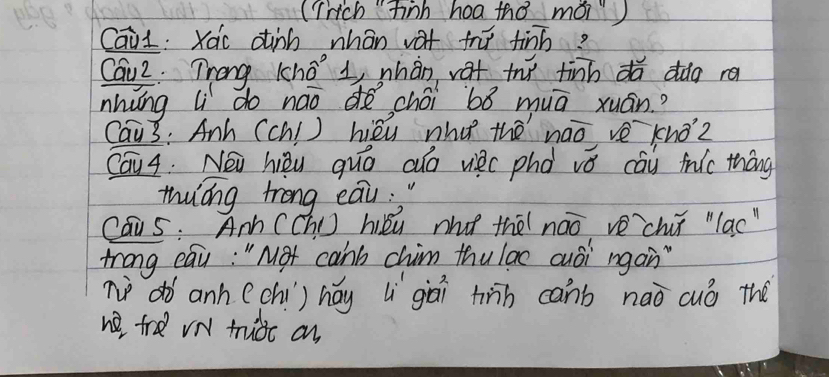 (Trích "Tinh hoa thơ mới")
Câu 1: Xác định nhân vật trữ tình?
Câu 2: Trong khổ 1, nhân vật trữ tình đã đưa ra
những lí do nào để chối bỏ mùa xuân.?
Câu 3: Anh (chị) hiểu như thế nào về khổ 2
Câu 4: Nêu hiệu quả của việc phá vỡ cấu trúc thông
thường trong câu: "
Câu 5: Anh (Chị) hiểu như thế nào về chữ "lạc"
trong câu: "Một cánh chim thu lạc cuối ngàn"
Từ đó anh (chị) hãy lí giải tình cảnh nào của thế
hệ trẻ VN trước